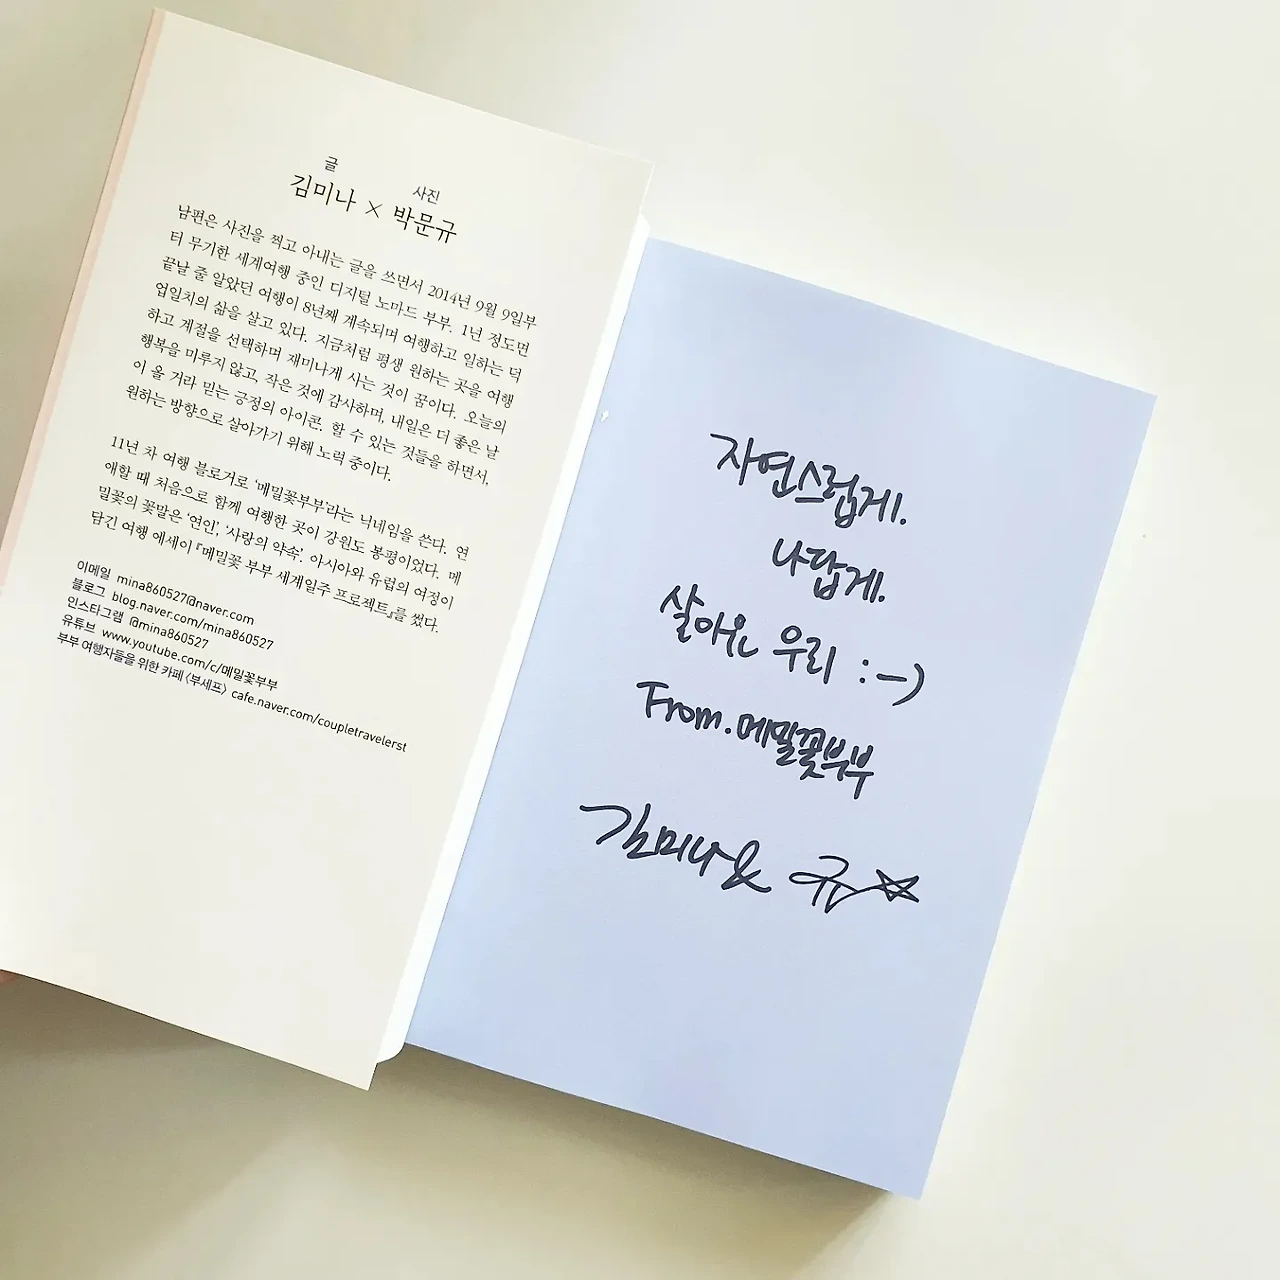 글
사진
김미나 × 박문규
남편은 사진을 찍고 아내는 글을 쓰면서 2014년 9월 9일부
터 무기한 세계여행 중인 디지털 노마드 부부. 1년 정도면
끝날 줄 알았던 여행이 8년째 계속되며 여행하고 일하는 덕
업일치의 삶을 살고 있다. 지금처럼 평생 원하는 곳을 여행
하고 계절을 선택하며 재미나게 사는 것이 꿈이다. 오늘의
행복을 미루지 않고, 작은 것에 감사하며, 내일은 더 좋은 날
이 올 거라 믿는 긍정의 아이콘. 할 수 있는 것들을 하면서,
원하는 방향으로 살아가기 위해 노력 중이다.
11년 차 여행 블로거로 ‘메밀꽃부부’라는 닉네임을 쓴다. 연
애할 때 처음으로 함께 여행한 곳이 강원도 봉평이었다. 메
밀꽃의 꽃말은 ‘연인’, ‘사랑의 약속’. 아시아와 유럽의 여정이
담긴 여행 에세이 『메밀꽃 부부 세계일주 프로젝트』를 썼다.
이메일 mina860527@naver.com
블로그 blog.naver.com/mina860527
인스타그램 @mina860527
유튜브 www.youtube.com/c/메밀꽃부부
부부 여행자들을 위한 카페 〈부세프〉 cafe.naver.com/coupletravelerst
자연스럽게.
나답게.
살아온 우리 :-)
From. 메밀꽃부부
김미나 & 규☆